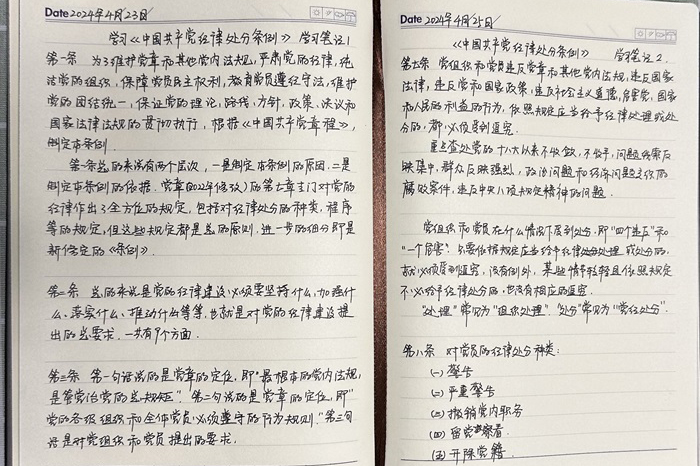 Date 2024年4月23日
学习《中国共产党纪律处分条例》 学习笔记1
第一条 为了维护党章和其他党内法规，严肃党的纪律，纯
洁党的组织，保障党员民主权利，教育党员遵纪守法，维护
党的团结统一，保证党的理论、路线、方针、政策、决议和
国家法律法规的贯彻执行，根据《中国共产党章程》，
制定本条例。
第一条总的来说有两个层次，一是制定本条例的原因，二是
制定本条例的依据。党章（2022年修改）的第七章专门对党的
纪律作出了全方位的规定，包括对纪律处分的种类、程序
等的规定，但这些规定都是总的原则，进一步的细分即是
新修定的《条例》。
第二条 总的来说是党的纪律建设必须要坚持什么、加强什
么、落实什么、推动什么等等，也就是对党的纪律建设提
出的总要求，一共有9个方面。
第三条 第一句话说的是党章的定位，即"最根本的党内法规，
是管党治党的总规矩"。第二句说的是党章的定位，即"
党的各级组织和全体党员必须遵守的行为规则。"第三句
话是对党组织和党员提出的要求。
Date 2024年4月25日
《中国共产党纪律处分条例》 学习笔记2.
第七条 党组织和党员违反党章和其他党内法规，违反国家
法律，违反党和国家政策，违反社会主义道德，危害党、国家
和人民的利益的行为，依照规定应当给予纪律处理或处
分的，都必须受到追究。
重点查处党的十八大以来不收敛、不收手，问题线索反
映集中、群众反映强烈，政治问题和经济问题交织的
腐败案件，违反中央八项规定精神的问题。
党组织和党员在什么情况下受到处分，即"四个违反"和
"一个危害"，只要依据规定应当给予纪律处理或处分的，
就必须受到追究，没有例外，某些情节较轻且依照规定
不必给予纪律处分的，也没有相应的追究。
"处理"常见为"组织处理"，"处分"常见为"党纪处分"。
第八条 对党员的纪律处分种类：
（一）警告
（二）严重警告
（三）撤销党内职务
（四）留党察看
（五）开除党籍